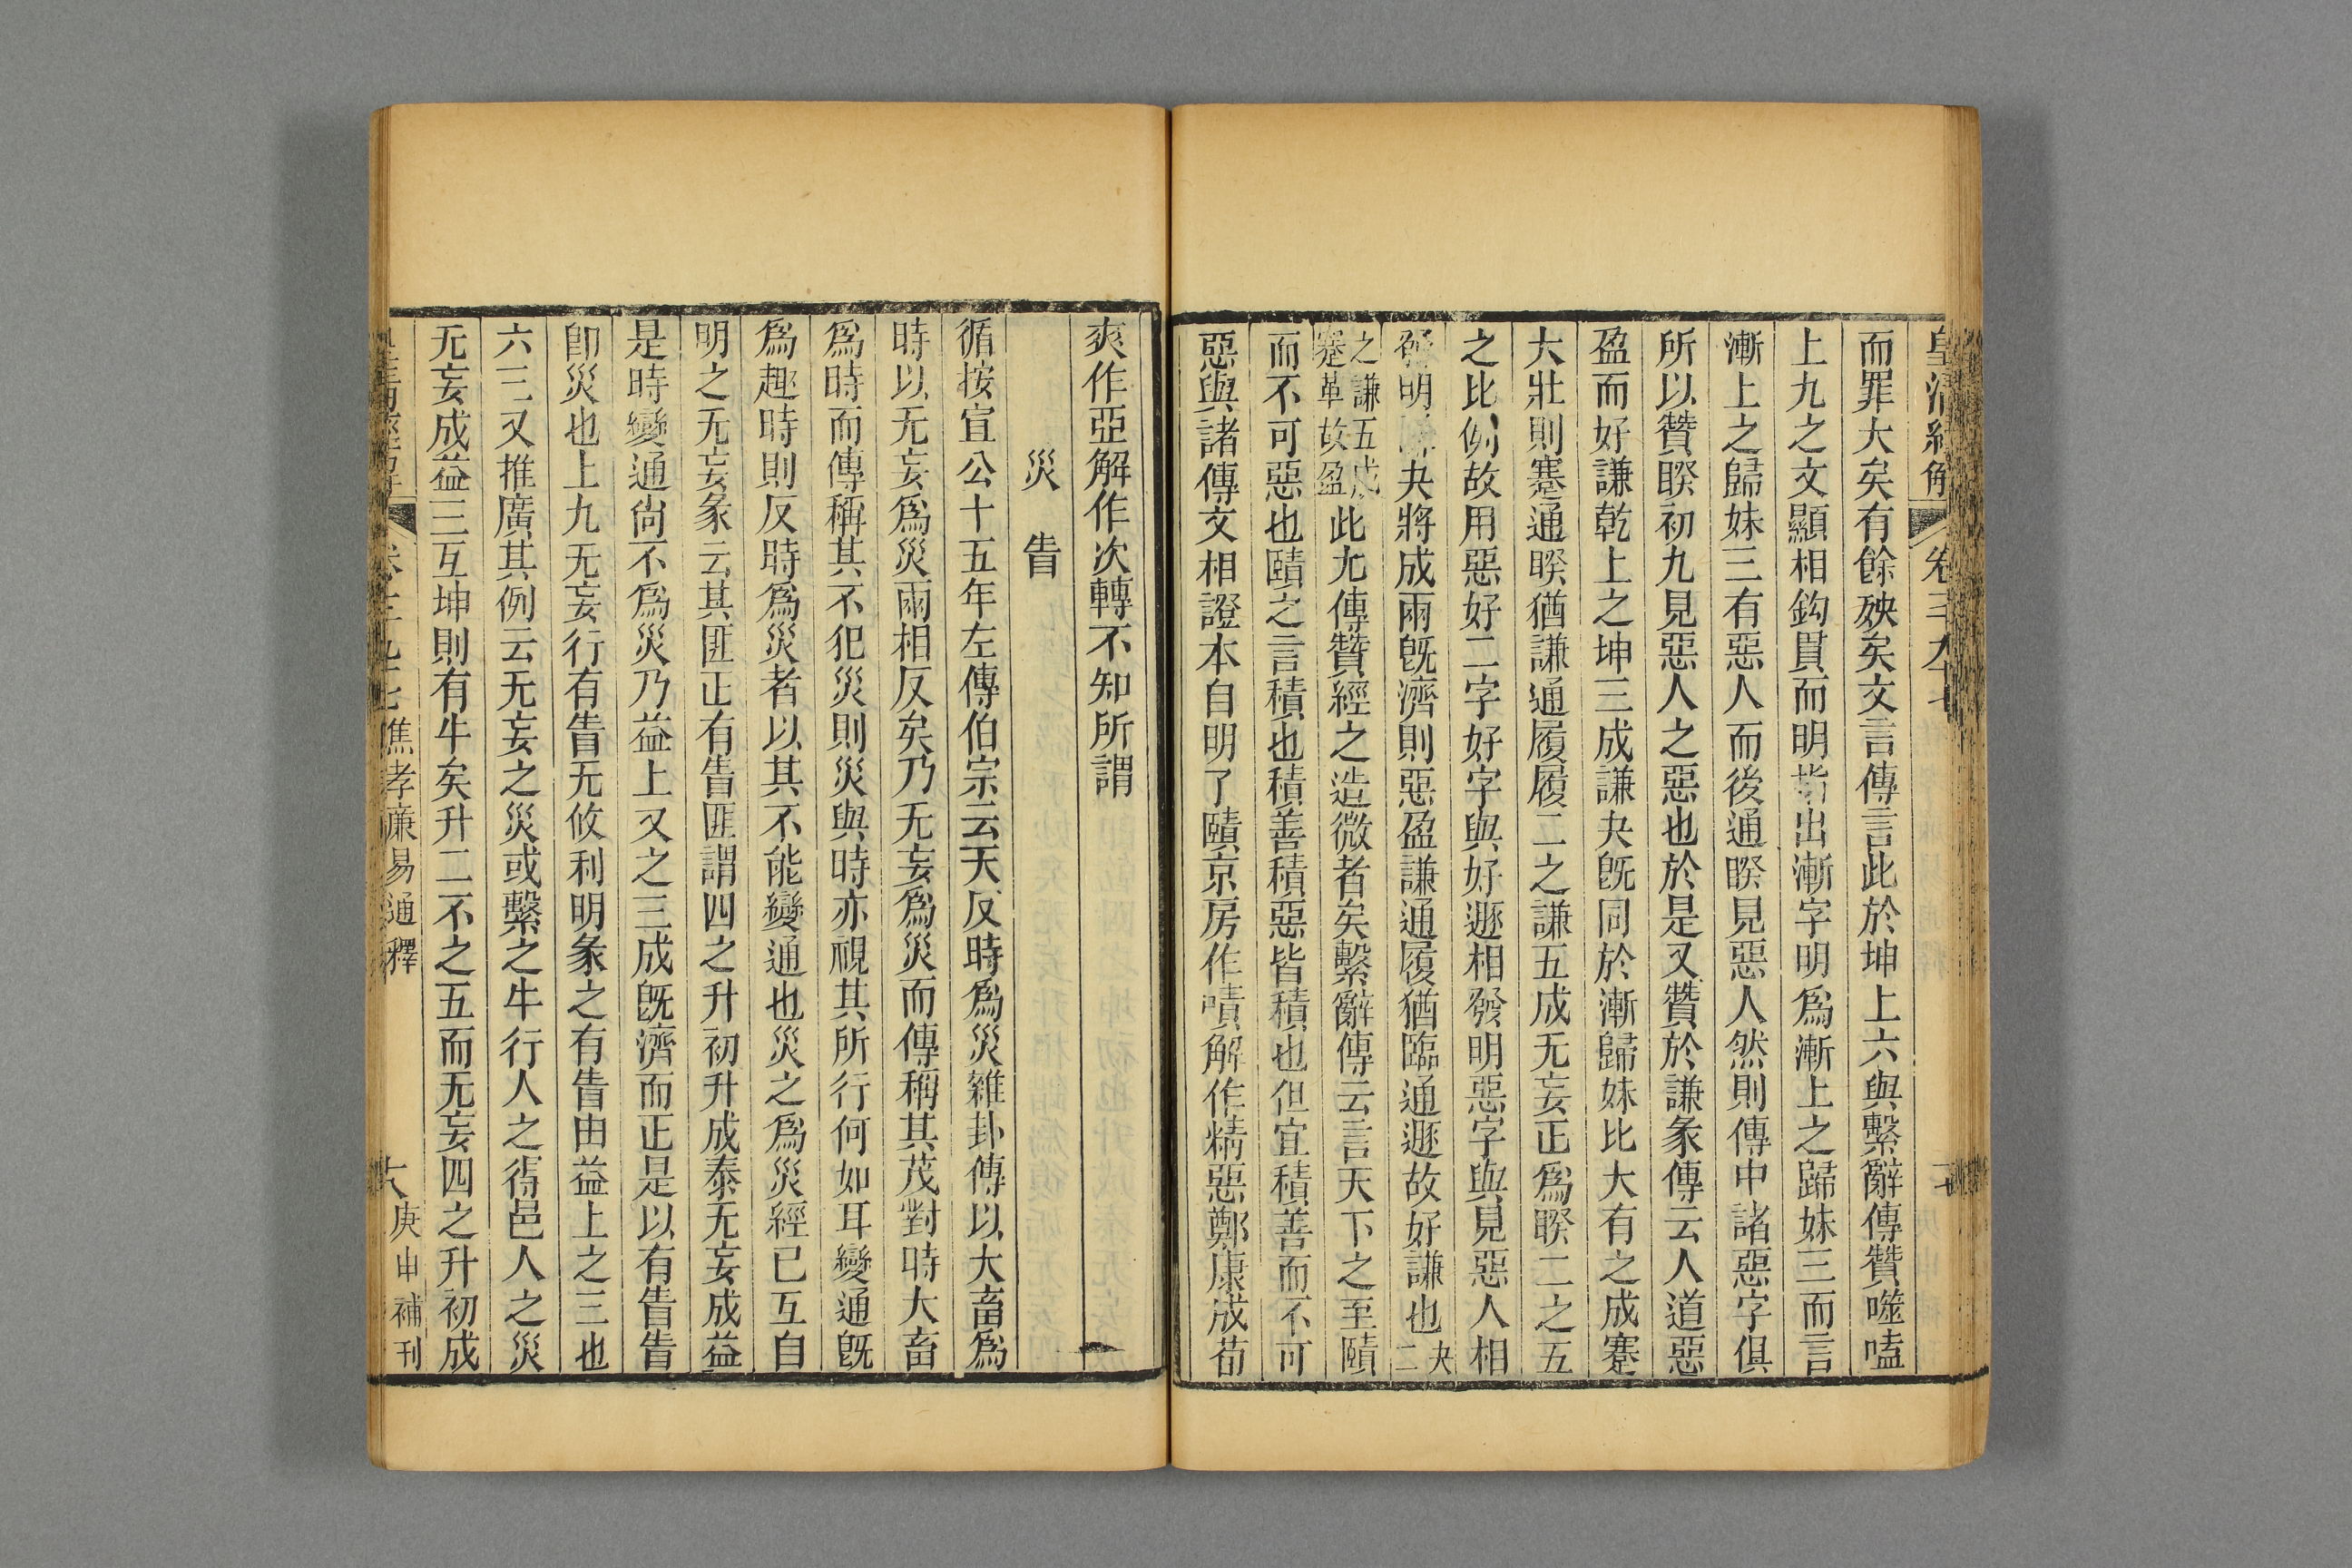 皇清經解 卷三九十七
而罪大矣有餘殃矣文言傳言此於坤上六與繫辭傳贊噬嗑
上九之文顯相鈎貫而明指出漸字明爲漸上之歸妹三而言
漸上之歸妹三有惡人而後通睽見惡人然則傳中諸惡字俱
所以贊睽初九見惡人之惡也於是又贊於謙彖傳云人道惡
盈而好謙乾上之坤三成謙夬旣同於漸歸妹比大有之成蹇
大壯則蹇通睽猶謙通履履二之謙五成无妄正爲睽二之五
之比例故用惡好二字好字與好遯相發明惡字與見惡人相
發明 夬將成兩旣濟則惡盈謙通履猶臨通遯故好謙也夬二
之謙五成蹇革故盈此尤傳贊經之造微者矣繫辭傳云言天下之至賾
而不可惡也賾之言積也積善積惡皆積也但宜積善而不可
惡與諸傳文相證本自明了賾京房作嘖解作精惡鄭康成荀
爽作亞解作次轉不知所謂
災眚
循按宣公十五年左傳伯宗云天反時爲災雜卦傳以大畜爲
時以无妄爲災兩相反矣乃无妄爲災而傳稱其茂對時大畜
爲時而傳稱其不犯災則災與時亦視其所行何如耳變通旣
爲趣時則反時爲災者以其不能變通也災之爲災經已互自
明之无妄彖云其匪正有眚匪謂四之升初升成泰无妄成益
是時變通尙不爲災乃益上又之三成旣濟而正是以有眚眚
卽災也上九无妄行有眚无攸利明彖之有眚由益上之三也
六三又推廣其例云无妄之災或繫之牛行人之得邑人之災
无妄成益三互坤則有牛矣升二不之五而无妄四之升初成
皇清經解 卷三九十七 焦孝廉易通釋 庚申補刊